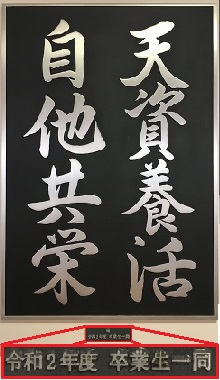 天資養活
自他共栄
令和2年度 卒業生一同
令和2年度 卒業生一同